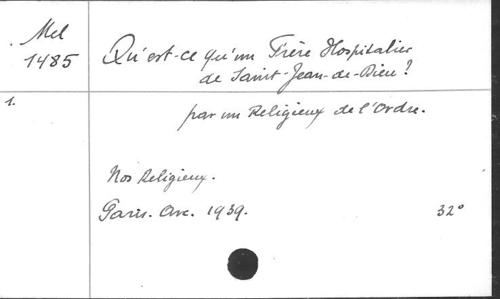 Mel
1485
Qu'est-ce qu'un Frère Hospitalier
de Saint-Jean-de-Dieu?
1.
par un Religieux de l'Ordre.
Nos Religieux.
Paris. Arc. 1939.
32°